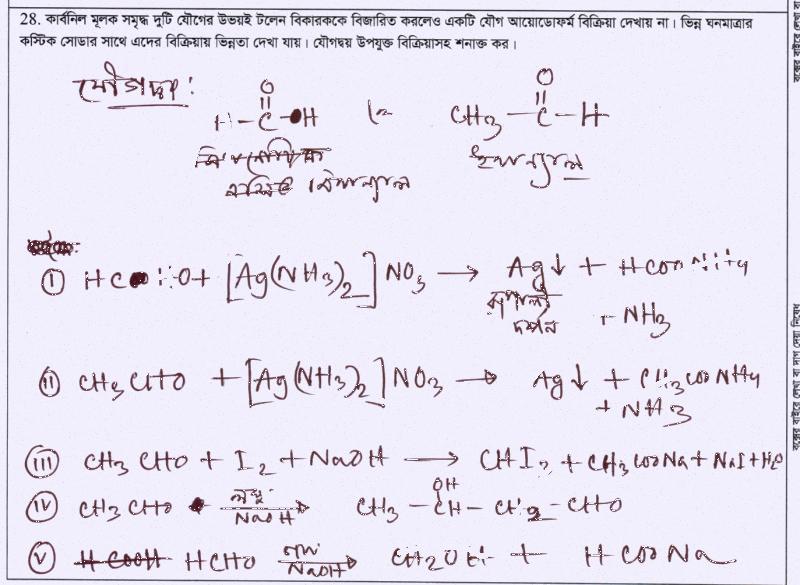 28. কার্বনিল মূলক সমৃদ্ধ দুটি যৌগের উভয়ই টলেন বিকারককে বিজারিত করলেও একটি যৌগ আয়োডোফর্ম বিক্রিয়া দেখায় না। ভিন্ন ঘনমাত্রার
কস্টিক সোডার সাথে এদের বিক্রিয়ায় ভিন্নতা দেখা যায়। যৌগদ্বয় উপযুক্ত বিক্রিয়াসহ শনাক্ত কর।
যৌগদ্বয়:
O O
H-C-H CH3-C-H
মিথান্যাল ইথান্যাল
(i) HCHO + [Ag(NH3)2]NO3 → Ag↓ + HCOONH4
রূপালী দর্পন + NH3
(ii) CH3CHO + [Ag(NH3)2]NO3 → Ag↓ + CH3COONH4
+ NH3
(iii) CH3CHO + I2 + NaOH → CHI3 + CH3COONa + NaI + H2O
OH
(iv) CH3CHO লঘু NaOH → CH3-CH-CH2-CHO
(v) HCHO গাঢ় NaOH → CH3OH + HCOONa